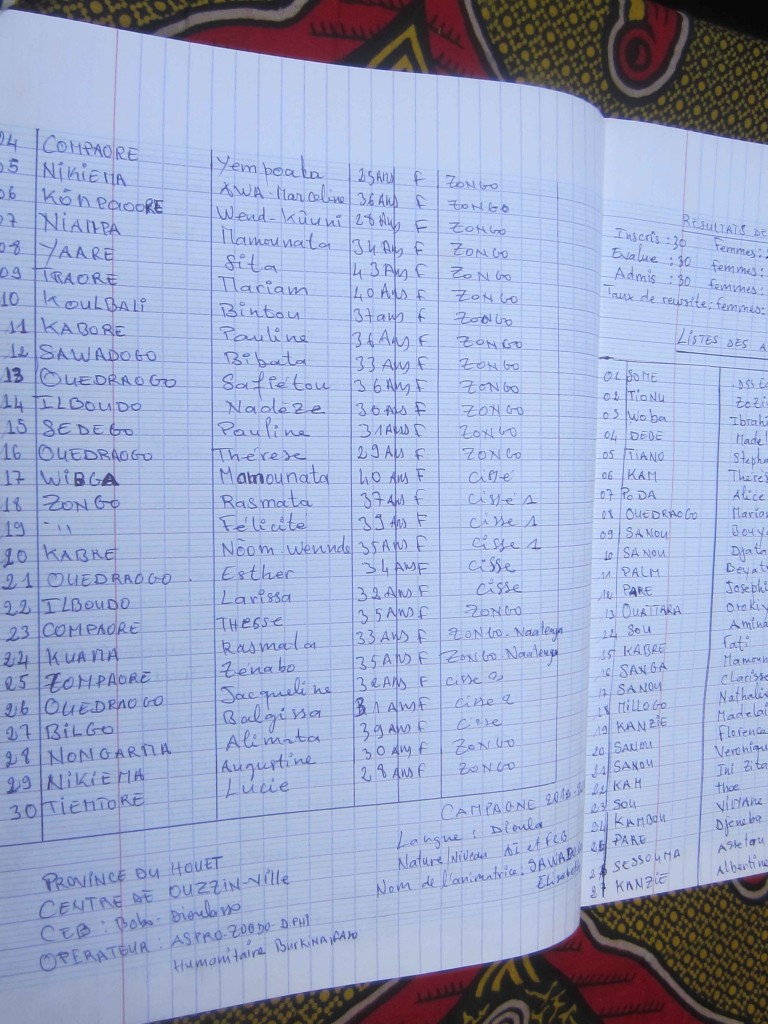 04 COMPAORE Yemboaba 25Ans F ZONGO
05 NIKIEMA AWA Marceline 36Ans F ZONGO
06 KÔNPAOORE Wend-Kûuni 28Ans F ZONGO
07 NIAMPA Mamounata 34Ans F ZONGO
08 YAARE Sita 43Ans F ZONGO
09 TRAORE Mariam 40Ans F ZONGO
10 KOULBALI Bintou 37ans F ZONGO
11 KABORE Pauline 36Ans F ZONGO
12 SAWADOGO Bibata 33Ans F ZONGO
13 OUEDRAOGO Safiétou 36Ans F ZONGO
14 ILBOUDO Nadèze 30Ans F ZONGO
15 SEDEGO Pauline 31Ans F ZONGO
16 OUEDRAOGO Thérèse 29Ans F ZONGO
17 WIBGA Mamounata 40Ans F Cissé
18 ZONGO Rasmata 37Ans F Cissé 1
19 -"- Félicité 39Ans F Cisse 1
20 KABRE Nõom Wende 35Ans F Cisse 1
21 OUEDRAOGO Esther 34Ans F Cisse
22 ILBOUDO Larissa 32Ans F Cisse
23 COMPAORE THESSE 35Ans F ZONGO
24 KUAMA Rasmata 33Ans F ZONGO-Naalenya
25 ZOMPAORE Zénabo 35Ans F ZONGO Naalenya
26 OUEDRAOGO Jacqueline 32Ans F Cisse 2
27 BILGO Balgissa 31Ans F Cisse 2
28 NONGARMA Alimata 39Ans F Cisse
29 NIKIEMA Augustine 30Ans F ZONGO
30 TIEMTORE Lucie 28Ans F ZONGO
CAMPAGNE 2018-2
PROVINCE DU HOUET Langue : Dioula
CENTRE DE OUZZIN-ville Nature/Niveau AI et FCB
CEB : Bobo-Dioulasso Nom de l'animatrice: SAWADO
OPERATEUR : ASPRO-ZOODO-DPHI
Humanitaire BURKINA FASO
RESULTATS DE
Inscris : 30 femmes:
Evalue : 30 femmes:
Admis : 30 femmes:
Taux de reussite: femmes:
LISTES DES A
01 SOME
02 TIONU Zozi
03 Woba Ibrahi
04 DEBE Madel
05 TIANO Stepha
06 KAM Therès
07 PODA Alice
08 OUEDRAOGO Maria
09 SANOU
10 SANOU
11 PALM
12 PARE Josephi
13 OUATTARA
14 SOU Amina
15 KABRE Fati
16 SANGA Mamoun
17 SANOU Clarisse
18 MILLOGO Nathalie
19 KANZIE Madelai
20 SANOU Florence
21 SANOU Veronique
22 KAM Ini Zita
23 SOU
24 KAMBOU
25 PARE Djeneba
26 SESSOUMA Assetou
27 KANZIE Albertine